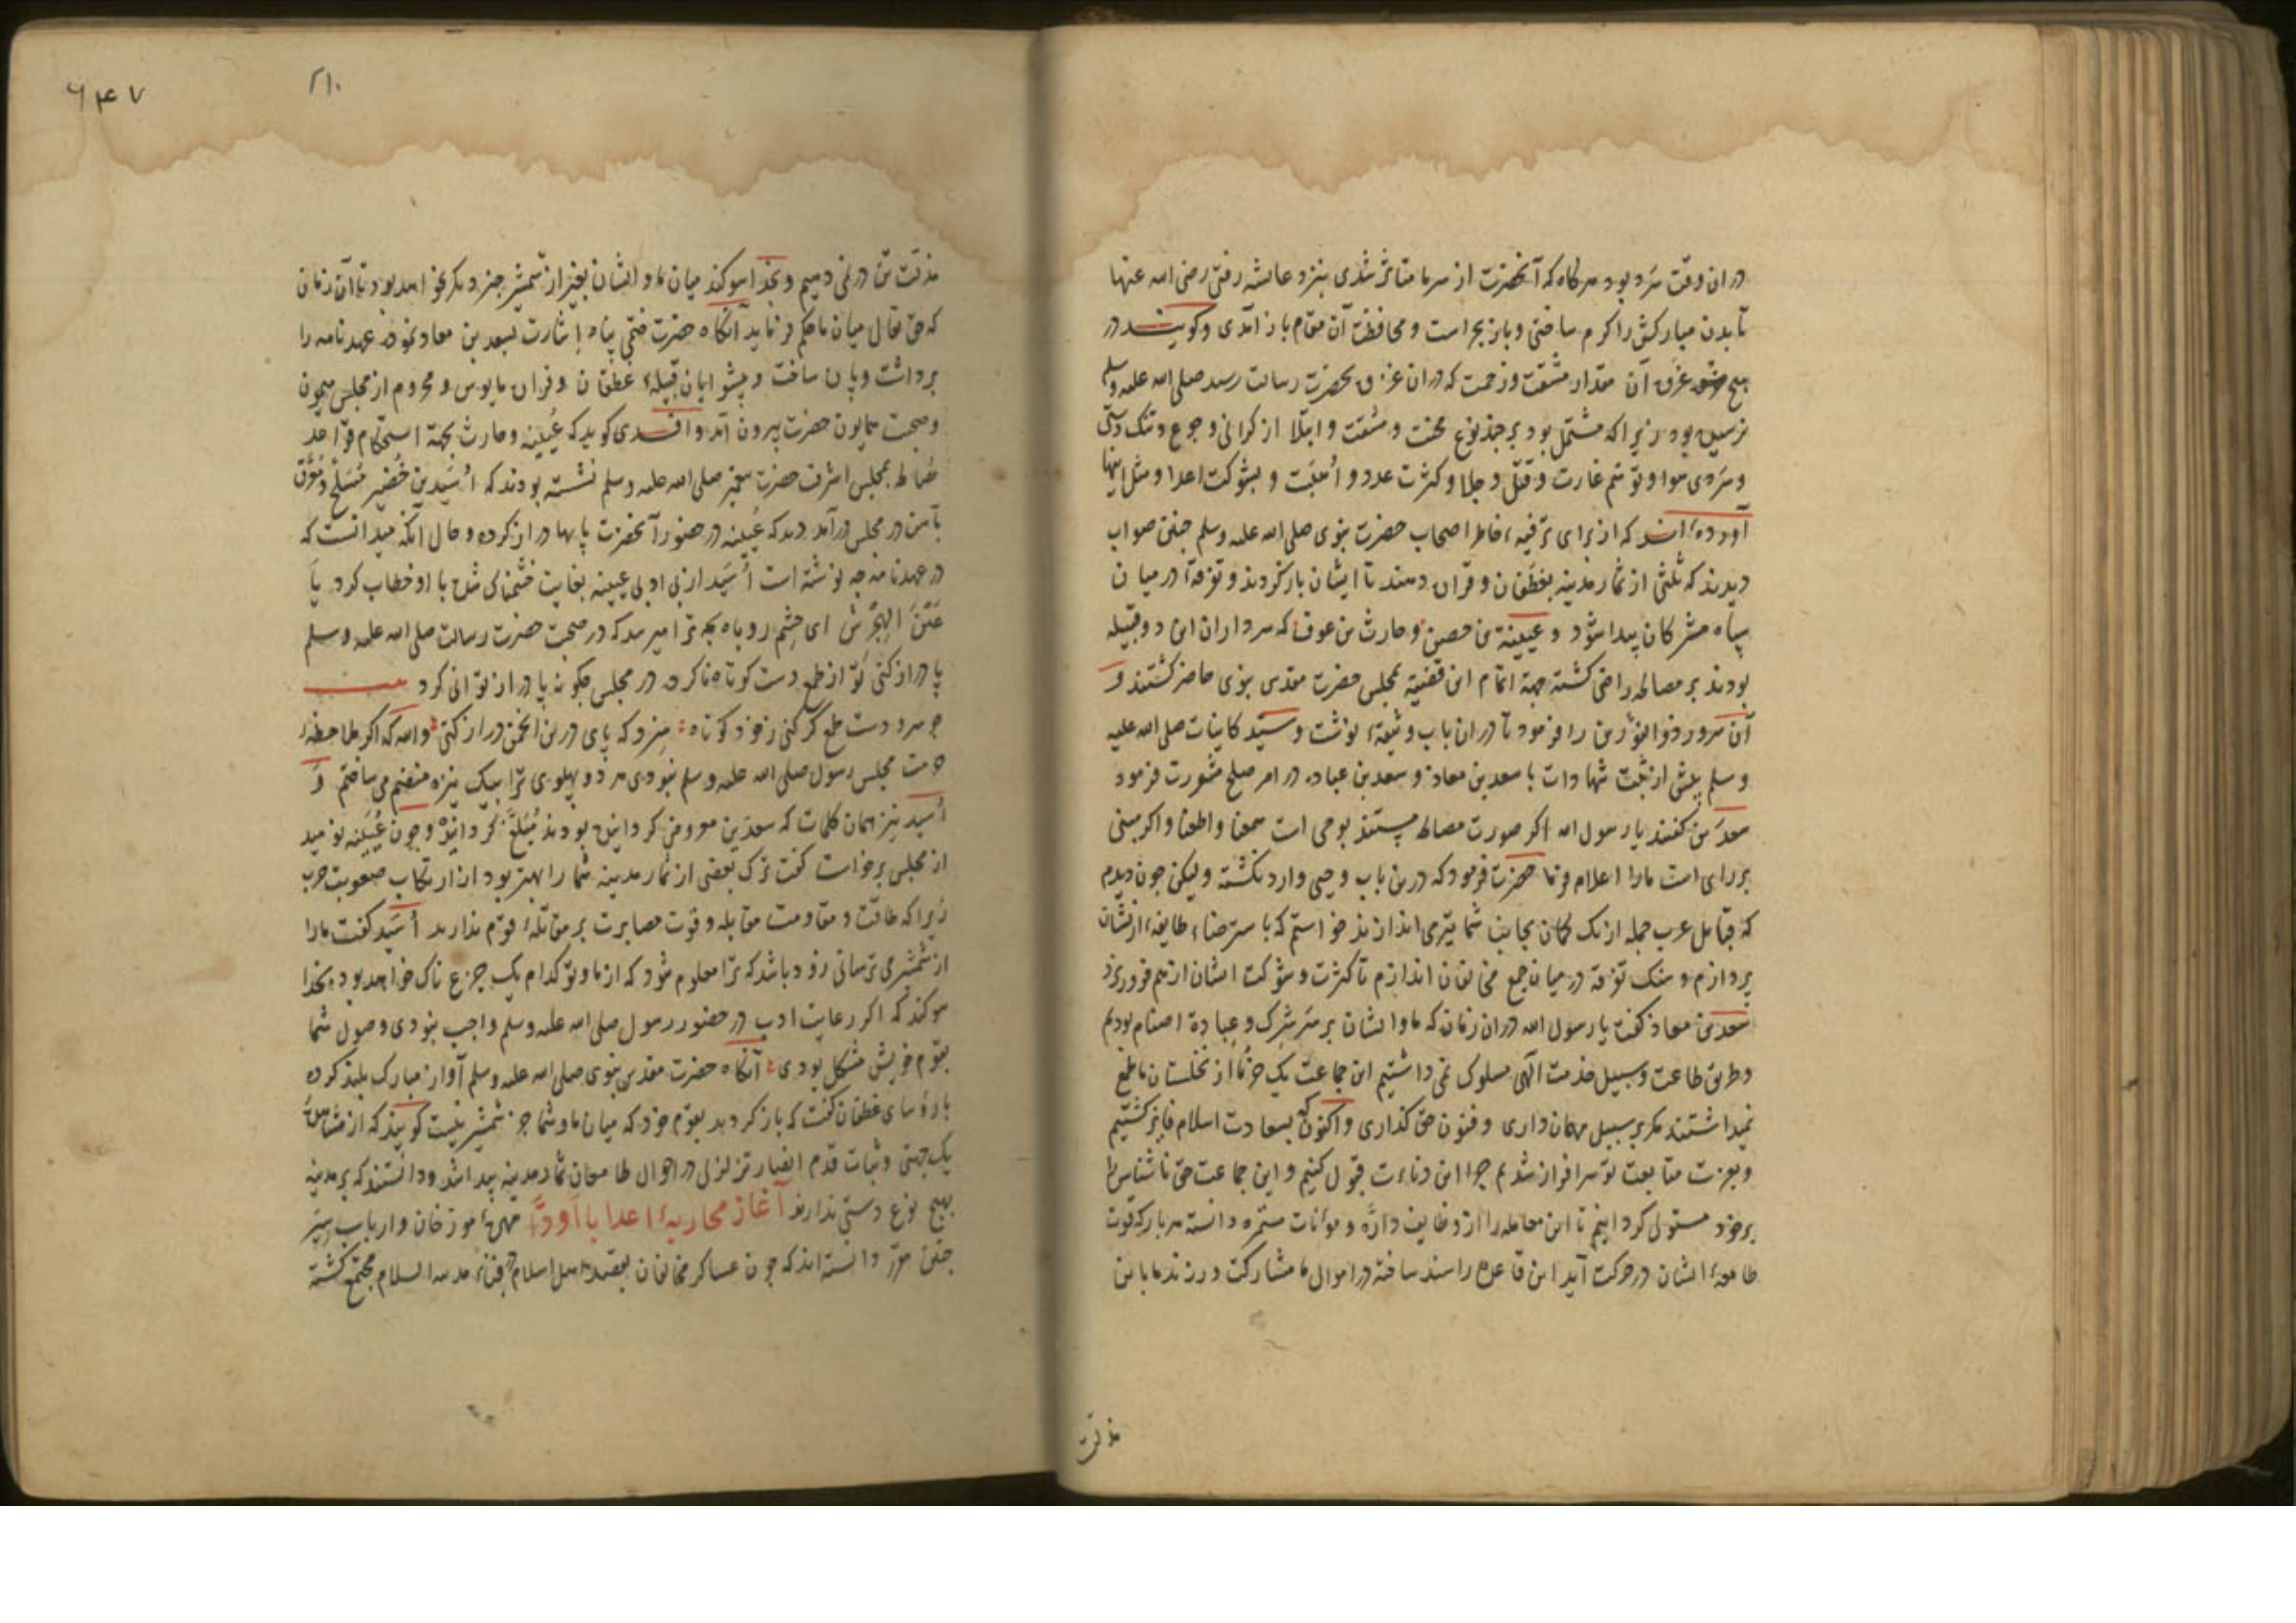 در ان وقت سرد بود هرکاه که آنحضرت از سرما متاثر شدی بنزد عایشه رفتی رضی الله عنها
تا بدن مبارکش را کرم ساختی و باز بحراست و محافظت آن مقام باز آمدی و کویند در
هیچ غزوه آن مقدار مشقت و زحمت که در ان غزوه بحضرت رسالت رسید صلی الله علیه وسلم
نرسیده بود زیرا که مشتمل بود بر چند نوع محنت و مشقت و ابتلا از کرانی و جوع و تنک دستی
و سردی هوا و توهم غارت و قتل و جلا و کثرت عدد و اهبت و شوکت اعدا و مثل اینها
آورده اند که از برای ترفیه خاطر اصحاب حضرت نبوی صلی الله علیه وسلم چنین صواب
دیدند که ثلثی از ثمار مدینه بغطفان و فزاره دهند تا ایشان باز کردند و تفرقه در میان
سپاه مشرکان پیدا شود و عیینة بن حصین و حارث بن عوف که سرداران این دو قبیله
بودند بر مصالحه راضی کشته جهة اتمام این قضیه بمجلس حضرت مقدس نبوی حاضر کشتند و
آن سرور ذوالنورین را فرمود تا در ان باب وثیقه نوشت و سید کاینات صلی الله علیه
وسلم پیش از ثبت شهادات با سعد بن معاذ و سعد بن عباده در امر صلح مشورت فرمود
سعدین کفتند یا رسول الله اکر صورت مصالحه مستند بوحی است سمعنا و اطعنا و اکر مبنی
بر رای است ما را اعلام فرما حضرت فرمود که درین باب وحیی وارد نکشته ولیکن چون دیدم
که قبایل عرب جمله از یک کمان بجانب شما تیر می اندازند خواستم که با سترضاء طایفه از یشان
پردازم و سنک تفرقه در میان جمع مخالفان اندازم تا کثرت و شوکت ایشان از هم فروریزد
سعد بن معاذ کفت یا رسول الله در ان زمان که ما و ایشان بر شرک و عبادة اصنام بودیم
و طریق طاعت و سبیل خدمت الهی مسلوک نمی داشتیم این جماعت یک خرما از نخلستان ما طمع
نمیداشتند مکر بر سبیل مهمان داری و فنون حق کذاری و اکنون که بسعادت اسلام فایز کشتیم
و بعزت متابعت تو سرافراز شدیم چرا این دناءت قبول کنیم و این جماعت حق ناشناس را
بر خود مستولی کردانیم تا این معامله را از وظایف دارّه و موٴنات مستمره دانسته هر بار که قوت
طامعه ایشان در حرکت آید این قاعده را سند ساخته در اموال ما مشارکت ورزند ما با این
مذلت
۶۴۷
۲۱۰
مذلت تن در نمی دهیم و بخدا سوکند میان ما و ایشان بغیر از شمشیر چیز دیکر نخواهد بود تا آن زمان
که حق تعالی میان ما حکم فرماید آنکاه حضرت ختمی پناه اشارت بسعد بن معاذ نمود عهدنامه را
برداشت و پاره ساخت و پیشوایان قبیله غطفان و فزاره مایوس و محروم از مجلس میمون
و صحبت همایون حضرت بیرون آمد و اقدی کوید که عیینه و حارث بجهة استحکام قواعد
مصالحه بمجلس اشرف حضرت پیغمبر صلی الله علیه وسلم نشسته بودند که اسید بن حضیر مسلح و مغرق
بآهن در مجلس درآمد دید که عیینه در حضور آنحضرت پایها دراز کرده و حال آنکه میدانست که
در عهدنامه چه نوشته است اسید از بی ادبی عیینه بغایت خشمناک شده با او خطاب کرد یا
عین الهجرس ای چشم روباه بچه ترا میرسد که در صحبت حضرت رسالت صلی الله علیه وسلم
پا دراز کنی تو از طمع دست کوتاه ناکرده در مجلس چکونه پا دراز توانی کرد بیت
چو مرد دست طمع کر کنی ز خود کوتاه سزد که پای درین انجمن دراز کنی والله که اکر ملاحظه
حرمت مجلس رسول صلی الله علیه وسلم نبودی هر دو پهلوی ترا بیک نیزه می ساختم و
اسید نیز همان کلمات که سعدین معروض کردانیده بودند مبلغ کردانید و چون عیینه نومید
از مجلس برخاست کفت ترک بعضی از ثمار مدینه شما را بهتر بود از ارتکاب صعوبت حرب
زیرا که طاقت و مقاومت مقابله و قوت مصابرت بر مقاتله قوم ندارید اسید کفت ما را
از شمشیر می ترسانی زود باشد که ترا معلوم شود که از ما و تو کدام یک جزع ناک خواهد بود بخدا
سوکند که اکر رعایت ادب در حضور رسول صلی الله علیه وسلم واجب نبودی وصول شما
بقوم خویش مشکل بودی آنکاه حضرت مقدس نبوی صلی الله علیه وسلم آواز مبارک بلند کرده
با رؤسای غطفان کفت که باز کردید بقوم خود که میان ما و شما جز شمشیر نیست کویند که از مشاهده
یک جهتی و ثبات قدم انصار تزلزلی در احوال طامعان ثمار مدینه پیدا شد و دانستند که بر مدینه
بهیچ نوع دستی ندارند آغاز محاربهٔ اعدا با اودّا مورخان و ارباب سیر
چنین دانسته اند که چون عساکر مخالفان بقصد اهل اسلام بفناء مدینة السلام مجتمع کشته